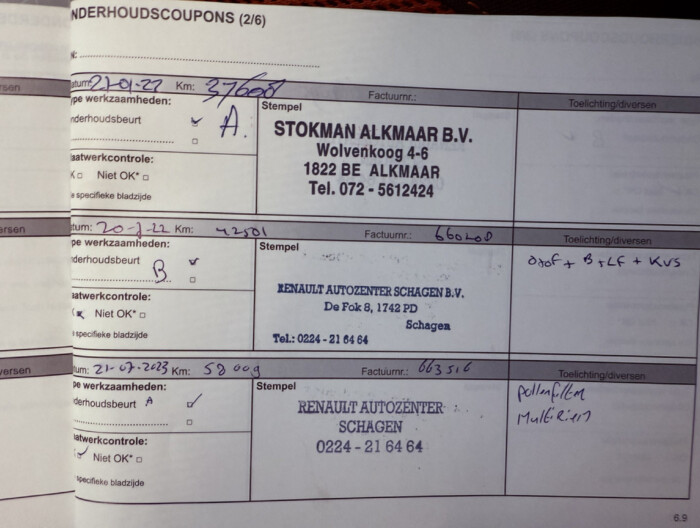 NDERHOUDSCOUPONS (2/6)
rsen
atum: 21-01-22 Km: 37608 Factuurnr.: Toelichting/diversen
pe werkzaamheden:
nderhoudsbeurt A.
Stempel
STOKMAN ALKMAAR B.V.
Wolvenkoog 4-6
1822 BE ALKMAAR
Tel. 072 - 5612424
aatwerkcontrole:
K Niet OK*
specifieke bladzijde
ersen
tum: 20-7-22 Km: 42501 Factuurnr.: Toelichting/diversen
pe werkzaamheden:
derhoudsbeurt B
Stempel
RENAULT AUTOZENTER SCHAGEN B.V.
De Fok 8, 1742 PD
Schagen
Tel.: 0224 - 21 64 64
+ B + LF + KVS
aatwerkcontrole:
Niet OK*
specifieke bladzijde
versen
tum: 21-07-2023 Km: 58009 Factuurnr.: 663516 Toelichting/diversen
pe werkzaamheden:
derhoudsbeurt A
Stempel
RENAULT AUTOZENTER
SCHAGEN
0224 - 21 64 64
pollenfilter
Multiriem
aatwerkcontrole:
Niet OK*
specifieke bladzijde
6.9